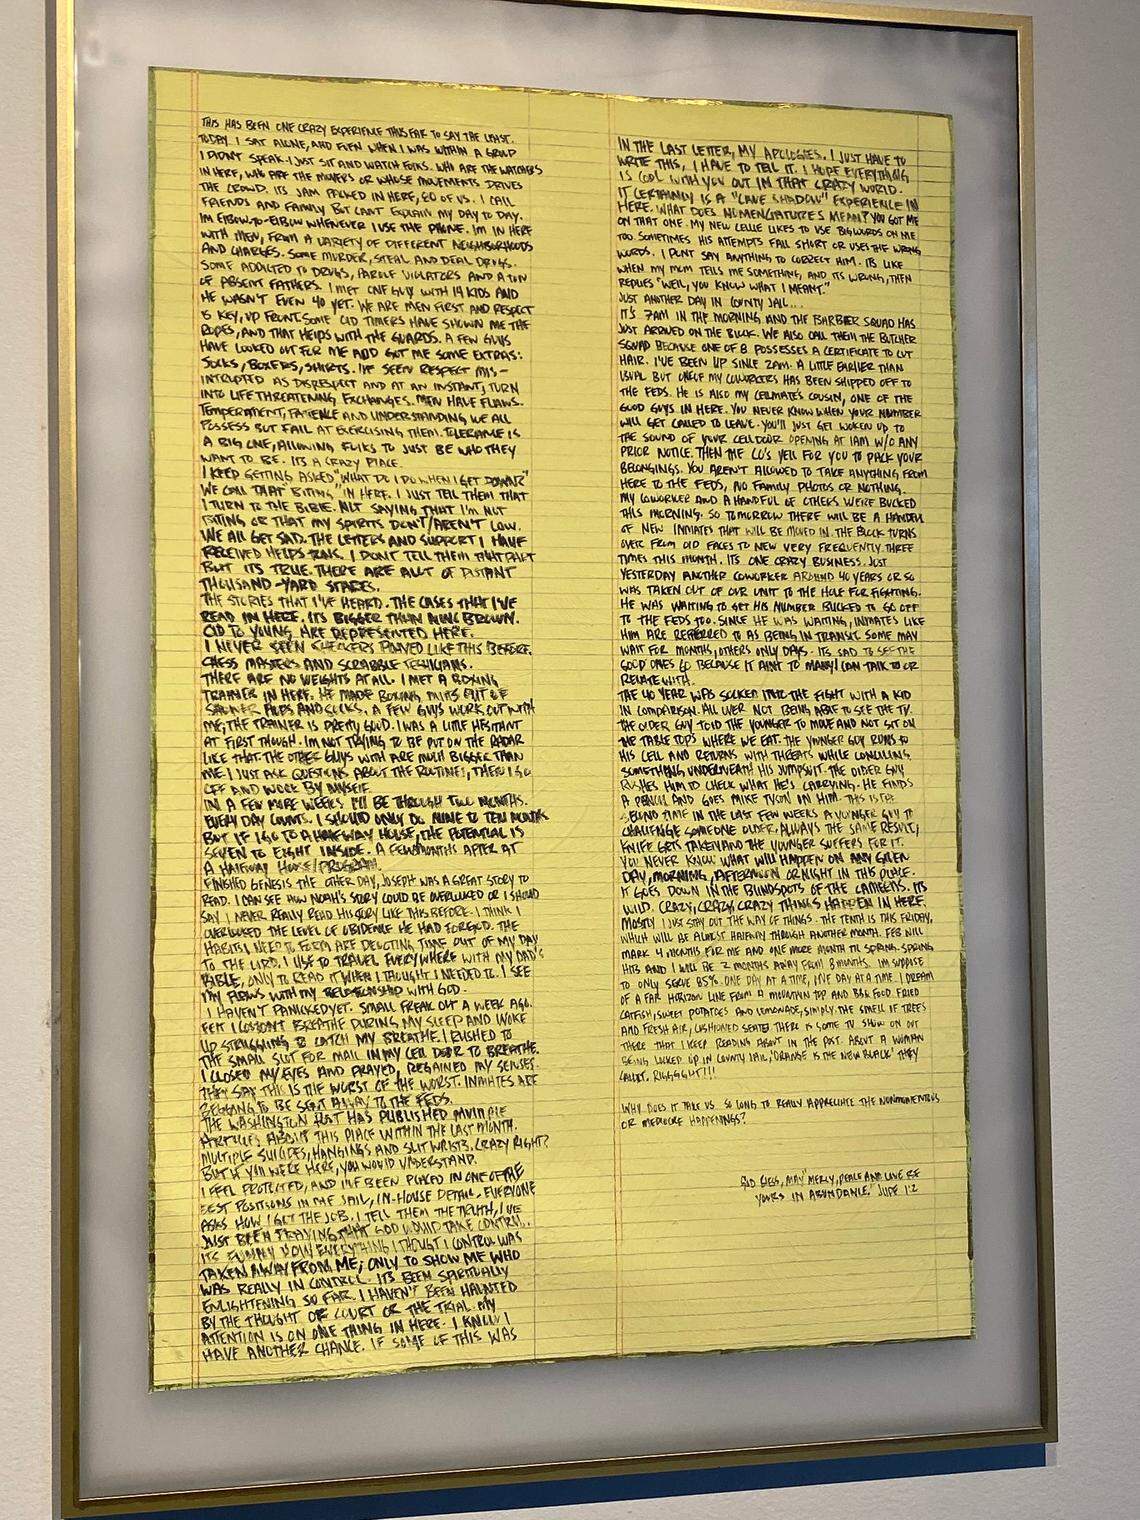 THIS HAS BEEN ONE CRAZY EXPERIENCE THUS FAR TO SAY THE LEAST.
TODAY I SAT ALONE, AND EVEN WHEN I WAS WITHIN A GROUP
I DIDN'T SPEAK. I JUST SIT AND WATCH FOLKS. WHO ARE THE WATCHERS
IN HERE, WHO ARE THE MOVERS OR WHOSE MOVEMENTS DRIVES
THE CROWD. ITS JAM PACKED IN HERE, 80 OF US. I CALL
FRIENDS AND FAMILY BUT CAN'T EXPLAIN MY DAY TO DAY.
IM ELBOW-TO-ELBOW WHENEVER I USE THE PHONE. IM IN HERE
WITH MEN, FROM A VARIETY OF DIFFERENT NEIGHBORHOODS
AND CHARGES. SOME MURDER, STEAL AND DEAL DRUGS.
SOME ADDICTED TO DRUGS, PAROLE VIOLATORS AND A TON
OF ABSENT FATHERS. I MET ONE GUY WITH 14 KIDS AND
HE WASN'T EVEN 40 YET. WE ARE MEN FIRST AND RESPECT
IS KEY, UP FRONT. SOME OLD TIMERS HAVE SHOWN ME THE
ROPES, AND THAT HELPS WITH THE GUARDS. A FEW GUYS
HAVE LOOKED OUT FOR ME AND GOT ME SOME EXTRAS:
SOCKS, BOXERS, SHIRTS. I'VE SEEN RESPECT MIS-
INTRUPTED AS DISRESPECT AND AT AN INSTANT, TURN
INTO LIFE THREATENING EXCHANGES. MEN HAVE FLAWS.
TEMPERAMENT, PATIENCE AND UNDERSTANDING WE ALL
POSSESS BUT FAIL AT EXERCISING THEM. TOLERANCE IS
A BIG ONE, ALLOWING FOLKS TO JUST BE WHO THEY
WANT TO BE. ITS A CRAZY PLACE.
I KEEP GETTING ASKED "WHAT DO I DO WHEN I GET DOWN?"
WE CALL THAT "BITING" IN HERE. I JUST TELL THEM THAT
I TURN TO THE BIBLE. NOT SAYING THAT I'M NOT
BITING OR THAT MY SPIRITS DON'T/AREN'T LOW.
WE ALL GET SAD. THE LETTERS AND SUPPORT I HAVE
RECEIVED HELPS TONS. I DON'T TELL THEM THAT PART
BUT ITS TRUE. THERE ARE ALOT OF DISTANT
THOUSAND-YARD STARES.
THE STORIES THAT I'VE HEARD. THE CASES THAT I'VE
READ IN HERE. ITS BIGGER THAN NINO BROWN.
OLD TO YOUNG ARE REPRESENTED HERE.
I NEVER SEEN CHECKERS PLAYED LIKE THIS BEFORE.
CHESS MASTERS AND SCRABBLE TECHICIANS.
THERE ARE NO WEIGHTS AT ALL. I MET A BOXING
TRAINER IN HERE. HE MADE BOXING MITTS OUT OF
SHOWER FLIPS AND SOCKS. A FEW GUYS WORK OUT WITH
ME, THE TRAINER IS PRETTY GOOD. I WAS A LITTLE HESITANT
AT FIRST THOUGH. IM NOT TRYING TO BE PUT ON THE RADAR
LIKE THAT. THE OTHER GUYS WITH ARE MUCH BIGGER THAN
ME. I JUST ASK QUESTIONS ABOUT THE ROUTINE, THEN I GO
OFF AND WORK BY MYSELF.
IN A FEW MORE WEEKS I'LL BE THROUGH TWO MONTHS.
EVERY DAY COUNTS. I SHOULD ONLY DO NINE TO TEN MONTHS
BUT IF I GO TO A HALFWAY HOUSE, THE POTENTIAL IS
SEVEN TO EIGHT INSIDE. A FEW MONTHS AFTER AT
A HALFWAY HOUSE/PROGRAM.
FINISHED GENESIS THE OTHER DAY, JOSEPH WAS A GREAT STORY TO
READ. I CAN SEE HOW NOAH'S STORY COULD BE OVERLOOKED OR I SHOULD
SAY I NEVER REALLY READ HIS STORY LIKE THIS BEFORE. I THINK I
OVERLOOKED THE LEVEL OF OBIDENCE HE HAD FOR GOD. THE
HABITS I NEED TO FORM ARE DEVOTING TIME OUT OF MY DAY
TO THE LORD. I USE TO TRAVEL EVERYWHERE WITH MY DAD'S
BIBLE, ONLY TO READ IT WHEN I THOUGHT I NEEDED TO. I SEE
MY FLAWS WITH MY RELATIONSHIP WITH GOD.
I HAVEN'T PANICKED YET. SMALL FREAK OUT A WEEK AGO.
FELT I COULDN'T BREATHE DURING MY SLEEP AND WOKE
UP STRUGGLING TO CATCH MY BREATHE. I RUSHED TO
THE SMALL SLOT FOR MAIL IN MY CELL DOOR TO BREATHE.
I CLOSED MY EYES AND PRAYED, REGAINED MY SENSES.
THEY SAY THIS IS THE WORST OF THE WORST. INMATES ARE
BEGGING TO BE SENT AWAY TO THE FEDS.
THE WASHINGTON POST HAS PUBLISHED MULTIPLE
ARTICLES ABOUT THIS PLACE WITHIN THE LAST MONTH.
MULTIPLE SUICIDES, HANGINGS AND SLIT WRISTS. CRAZY RIGHT?
BUT IF YOU WERE HERE, YOU WOULD UNDERSTAND.
I FEEL PROTECTED, AND I'VE BEEN PLACED IN ONE OF THE
BEST POSITIONS IN THE JAIL, IN-HOUSE DETAIL. EVERYONE
ASKS HOW I GOT THE JOB. I TELL THEM THE TRUTH, I'VE
JUST BEEN PRAYING THAT GOD WOULD TAKE CONTROL.
ITS FUNNY HOW EVERYTHING I THOUGHT I CONTROL WAS
TAKEN AWAY FROM ME; ONLY TO SHOW ME WHO
WAS REALLY IN CONTROL. ITS BEEN SPIRITUALLY
ENLIGHTENING SO FAR. I HAVEN'T BEEN HAUNTED
BY THE THOUGHT OF COURT OR THE TRIAL. MY
ATTENTION IS ON ONE THING IN HERE. I KNOW I
HAVE ANOTHER CHANCE. IF SOME OF THIS WAS
IN THE LAST LETTER, MY APOLOGIES. I JUST HAVE TO
WRITE THIS, I HAVE TO TELL IT. I HOPE EVERYTHING
IS COOL WITH YOU OUT IN THAT CRAZY WORLD.
IT CERTAINLY IS A "CAVE SHADOW" EXPERIENCE IN
HERE. WHAT DOES NOMENCLATURES MEAN? YOU GOT ME
ON THAT ONE. MY NEW CELLIE LIKES TO USE BIG WORDS ON ME
TOO. SOMETIMES HIS ATTEMPTS FALL SHORT OR USES THE WRONG
WORDS. I DONT SAY ANYTHING TO CORRECT HIM. ITS LIKE
WHEN MY MOM TELLS ME SOMETHING, AND ITS WRONG, THEN
REPLIES "WELL, YOU KNOW WHAT I MEANT."
JUST ANOTHER DAY IN COUNTY JAIL...
IT'S 7AM IN THE MORNING AND THE BARBER SQUAD HAS
JUST ARRIVED ON THE BLOCK. WE ALSO CALL THEM THE BUTCHER
SQUAD BECAUSE ONE OF 8 POSSESSES A CERTIFICATE TO CUT
HAIR. I'VE BEEN UP SINCE 2AM. A LITTLE EARLIER THAN
USUAL BUT ONE OF MY COWORKERS HAS BEEN SHIPPED OFF TO
THE FEDS. HE IS ALSO MY CELLMATES COUSIN, ONE OF THE
GOOD GUYS IN HERE. YOU NEVER KNOW WHEN YOUR NUMBER
WILL GET CALLED TO LEAVE. YOU'LL JUST GET WOKEN UP TO
THE SOUND OF YOUR CELL DOOR OPENING AT 1AM W/O ANY
PRIOR NOTICE. THEN THE CO'S YELL FOR YOU TO PACK YOUR
BELONGINGS. YOU AREN'T ALLOWED TO TAKE ANYTHING FROM
HERE TO THE FEDS, NO FAMILY PHOTOS OR NOTHING.
MY COWORKER AND A HANDFUL OF OTHERS WERE BUCKED
THIS MORNING. SO TOMORROW THERE WILL BE A HANDFUL
OF NEW INMATES THAT WILL BE MOVED IN. THE BLOCK TURNS
OVER FROM OLD FACES TO NEW VERY FREQUENTLY. THREE
TIMES THIS MONTH. IT'S ONE CRAZY BUSINESS. JUST
YESTERDAY ANOTHER COWORKER AROUND 40 YEARS OR SO
WAS TAKEN OUT OF OUR UNIT TO THE HOLE FOR FIGHTING.
HE WAS WAITING TO GET HIS NUMBER BUCKED TO GO OFF
TO THE FEDS TOO. SINCE HE WAS WAITING, INMATES LIKE
HIM ARE REFERRED TO AS BEING IN TRANSIT. SOME MAY
WAIT FOR MONTHS, OTHERS ONLY DAYS. ITS SAD TO SEE THE
GOOD ONES GO BECAUSE IT AINT TO MANY I CAN TALK TO OR
RELATE WITH.
THE 40 YEAR WAS SUCKED INTO THE FIGHT WITH A KID
IN COMPARISON. ALL OVER NOT BEING ABLE TO SEE THE TV.
THE OLDER GUY TOLD THE YOUNGER TO MOVE AND NOT SIT ON
THE TABLE TOPS WHERE WE EAT. THE YOUNGER GUY RUNS TO
HIS CELL AND RETURNS WITH THREATS WHILE CONCILING
SOMETHING UNDERNEATH HIS JUMPSUIT. THE OLDER GUY
RUSHES HIM TO CHECK WHAT HE'S CARRYING. HE FINDS
A PENCIL AND GOES MIKE TYSON ON HIM. THIS IS THE
SECOND TIME IN THE LAST FEW WEEKS A YOUNGER GUY TO
CHALLENGE SOMEONE OLDER. ALWAYS THE SAME RESULT,
KNIFE GETS TAKEN AND THE YOUNGER SUFFERS FOR IT.
YOU NEVER KNOW WHAT WILL HAPPEN ON ANY GIVEN
DAY, MORNING, AFTERNOON OR NIGHT IN THIS PLACE.
IT GOES DOWN IN THE BLINDSPOTS OF THE CAMERAS. ITS
WILD. CRAZY, CRAZY, CRAZY THINGS HAPPEN IN HERE.
MOSTLY I JUST STAY OUT THE WAY OF THINGS. THE TENTH IS THIS FRIDAY,
WHICH WILL BE ALMOST HALFWAY THROUGH ANOTHER MONTH. FEB WILL
MARK 4 MONTHS FOR ME AND ONE MORE MONTH TIL SPRING. SPRING
HITS AND I WILL BE 2 MONTHS AWAY FROM 8 MONTHS. IM SUPPOSE
TO ONLY SERVE 85%. ONE DAY AT A TIME, ONE DAY AT A TIME. I DREAM
OF A FAR HORIZON LINE FROM A MOUNTAIN TOP AND BBQ FOOD. FRIED
CATFISH, SWEET POTATOES AND LEMONADE, SIMPLY. THE SMELL OF TREES
AND FRESH AIR, CUSHIONED SEATS. THERE IS SOME TV SHOW ON OUT
THERE THAT I KEEP READING ABOUT IN THE POST. ABOUT A WOMAN
BEING LOCKED UP IN COUNTY JAIL, 'ORANGE IS THE NEW BLACK' THEY
CALL IT. RIGGGGHT!!!
WHY DOES IT TAKE US SO LONG TO REALLY APPRECIATE THE NONMOMENTOUS
OR MEDIOCRE HAPPENINGS?
GOD BLESS, MAY "MERCY, PEACE AND LOVE BE
YOURS IN ABUNDANCE." JUDE 1:2